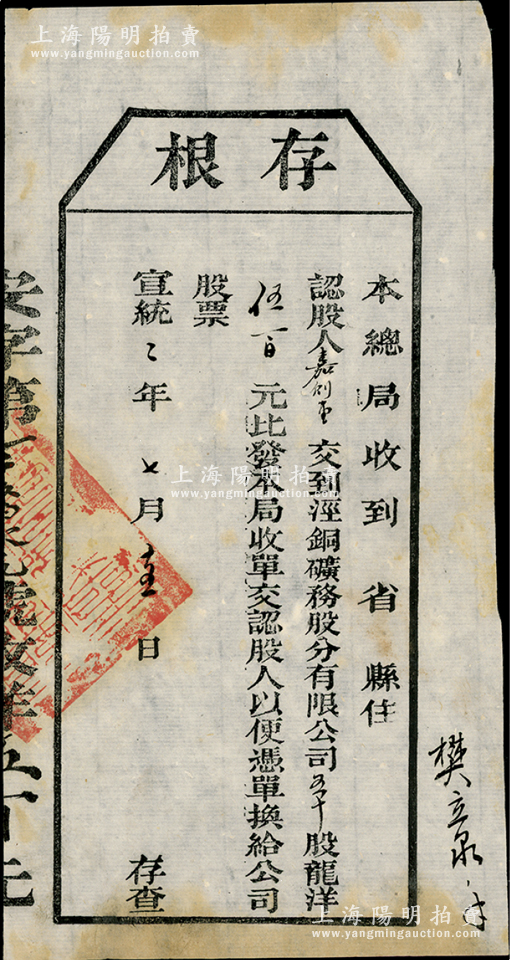 上海陽明拍賣
www.yangmingauction.com
存根
本總局收到 省 縣住
認股人嘉 交到涇銅礦務股分有限公司 股龍洋
伍百 元比發本局收單交認股人以便憑單換給公司
股票
宣統 二 年 七 月 壹 日 存查
安字第 號收洋五百元
樊立泉
上海陽明拍賣
www.yangmingauction.com
上海陽明拍賣
www.yangmingauction.com